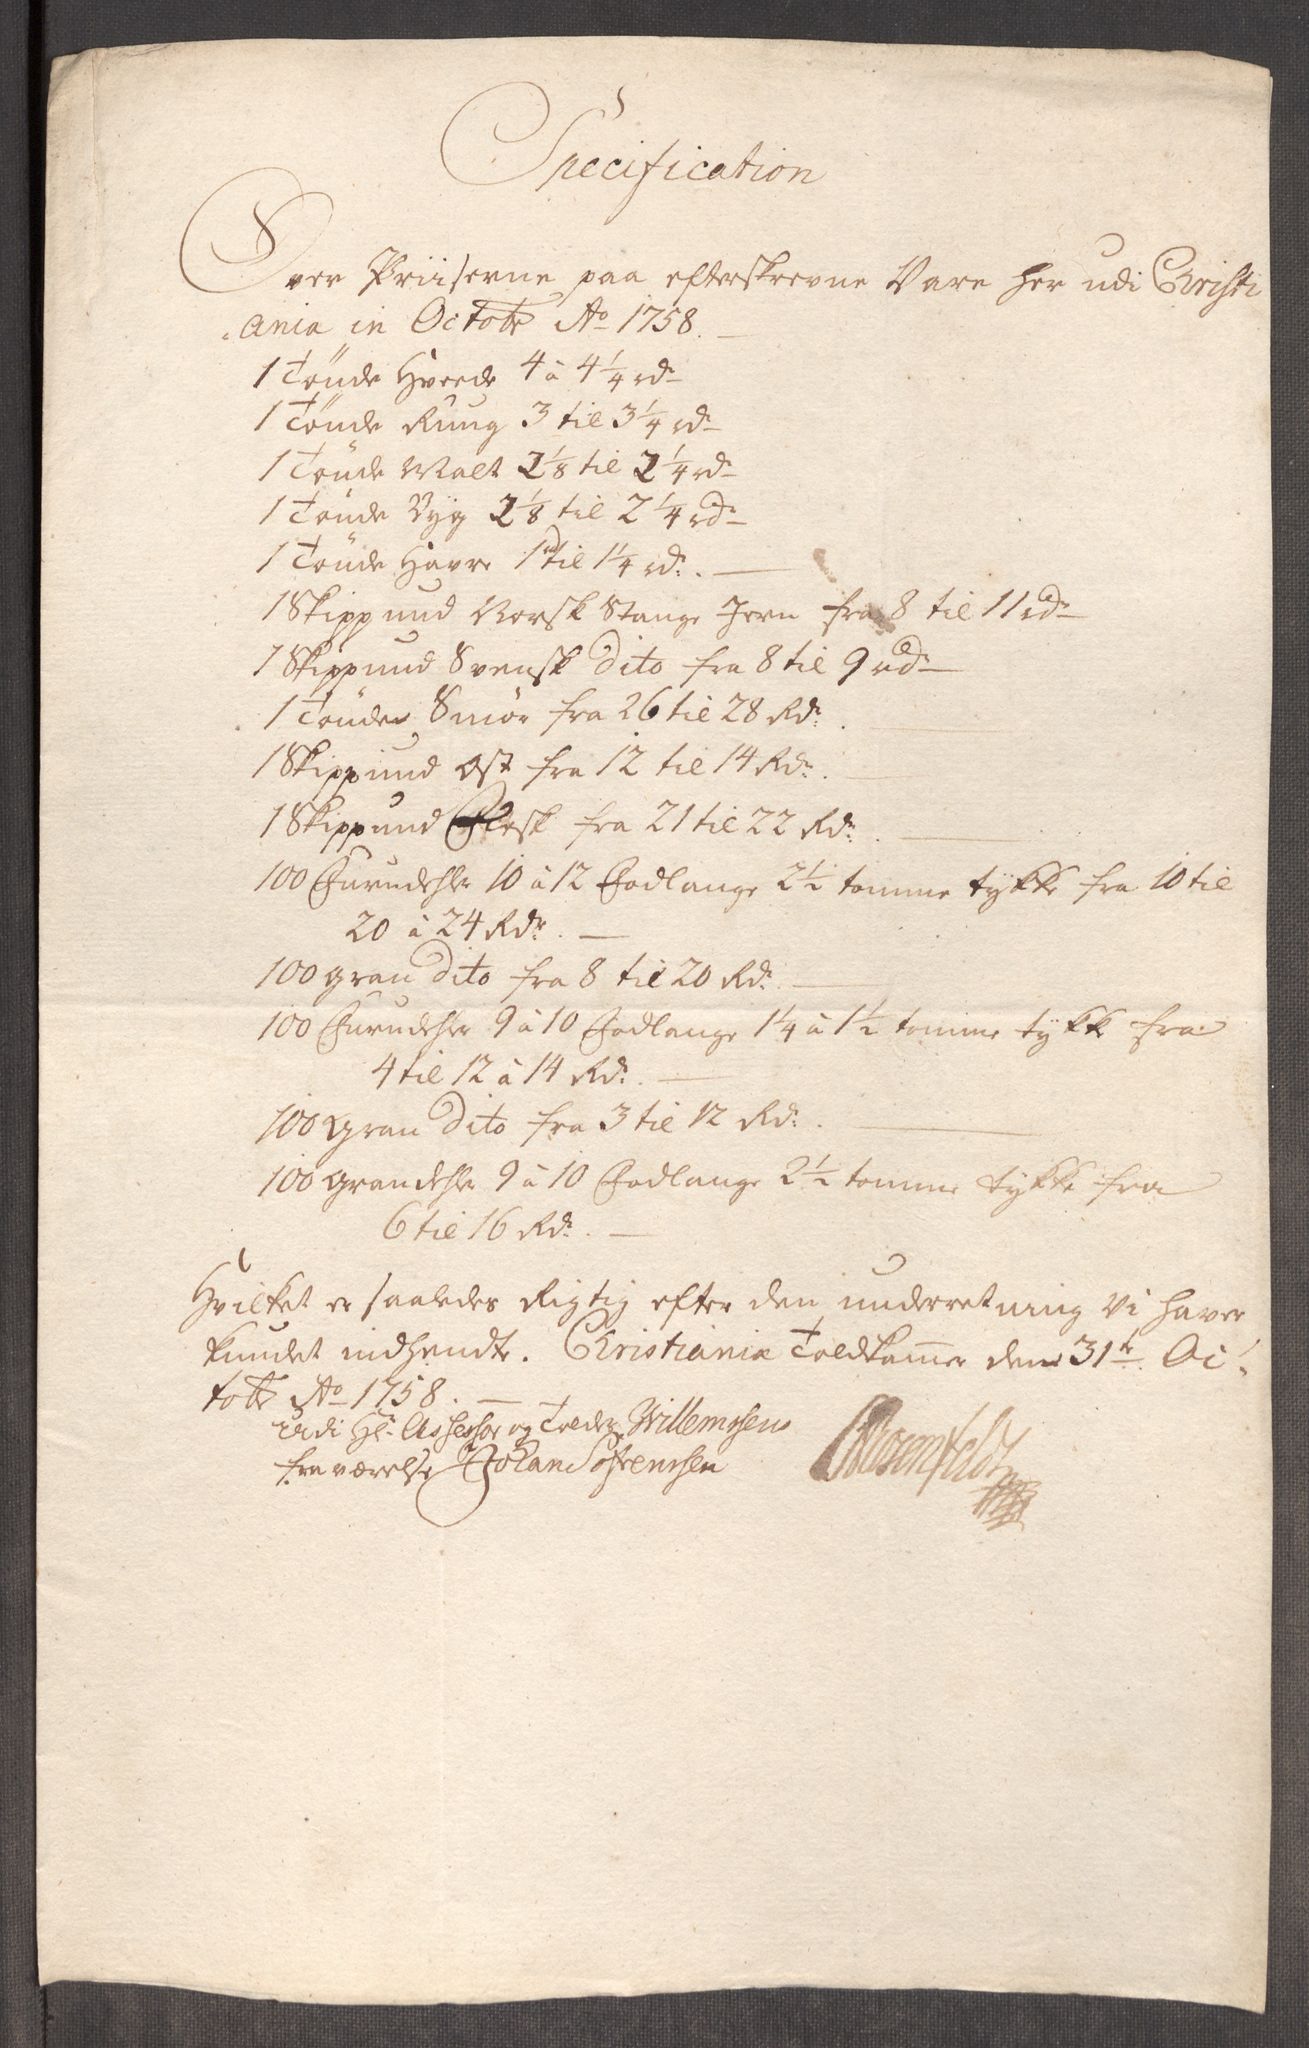 Specification
Over Priiserne paa efterskrevne Vare her udi Christi
ania in Octobr Ao 1758.
1 Tönde Hvede 4 à 4 1/4 rdr
1 Tönde Rung 3 til 3 1/4 rdr
1 Tönde Malt 2 1/8 til 2 1/4 rdr
1 Tönde Byg 2 1/8 til 2 1/4 rdr
1 Tönde Havre 1 rd til 1 1/4 rdr.
1 Skippund Norsk Stange Jern fra 8 til 11 rdr
1 Skippund Svensk dito fra 8 til 9 rdr
1 Tönde Smör fra 26 til 28 Rdr.
1 Skippund Ost fra 12 til 14 Rdr.
1 Skippund Flesk fra 21 til 22 Rdr.
100 Furudehler 10 à 12 Fodlange 2 1/2 tomme tykke fra 10 til
20 à 24 Rdr.
100 gran dito fra 8 til 20 Rdr.
100 Furudehler 9 à 10 Fodlange 1 1/4 à 1 1/2 tomme tykk fra
4 til 12 à 14 Rdr.
100 Gran dito fra 3 til 12 Rdr.
100 Grandehler 9 à 10 Fodlange 2 1/2 tomme tykke fra
6 til 16 Rdr.
Hvilket er saaledes Rigtig efter den underretning Vi haver
kundet indhendte. Christiania Toldkammer den 31te Oc
tobr Ao 1758.
udi Hr. Assessor og Tolder Willemsens
fraværelse Johan Sörensen
Rosenfeldt